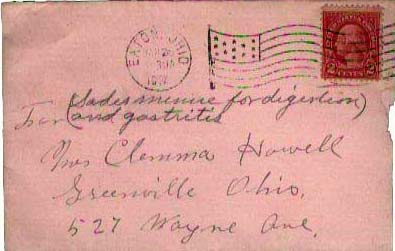 EATON, OHIO
2 CENTS 2
(Sades menure for digestion)
For and gastritis
Mrs Clemma Howell
Greenville Ohio.
527 Wayne Ave.